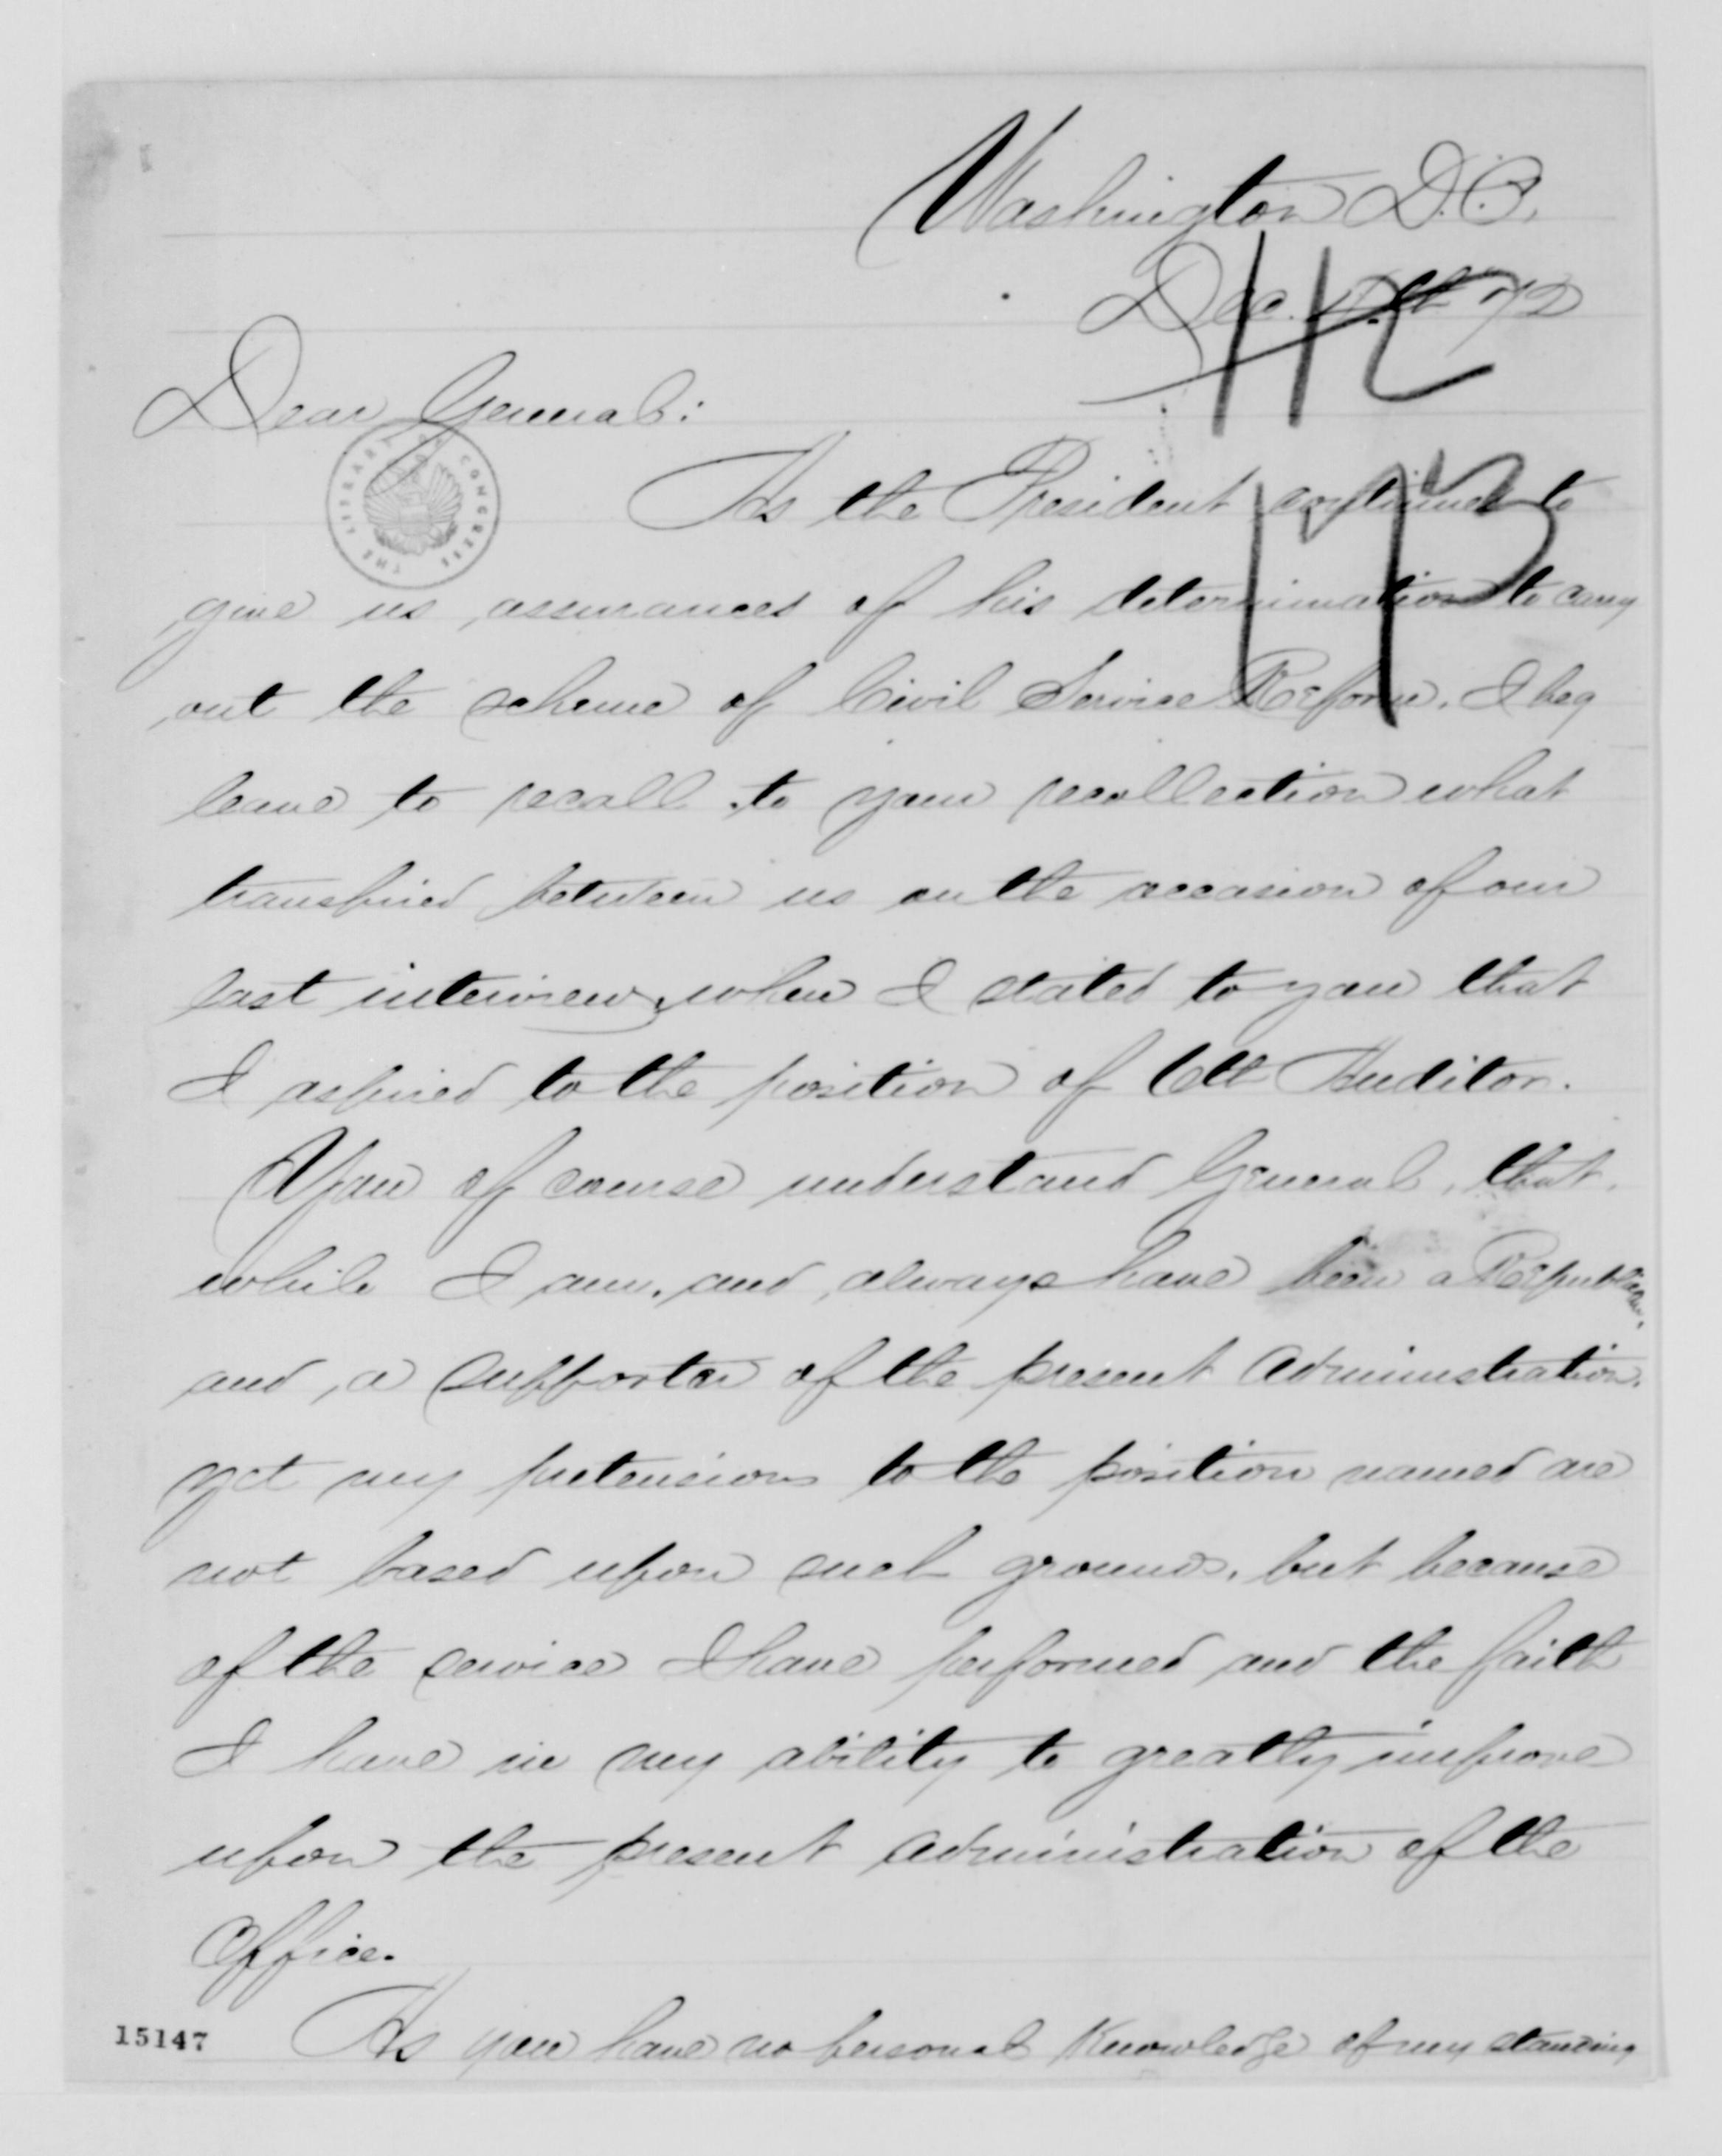 Washington D.C.
Dec. 4th 72
112
Dear General:
173
As the President continues to
give us assurances of his determination to carry
out the scheme of Civil Service Reform. I beg
leave to recall to your recollection what
transpired between us on the occasion of our
last interview, when I stated to you that
I aspired to the position of 6th Auditor.
You of course understand General, that,
while I am, and always have been a Republican,
and, a supporter of the present Administration,
yet my pretensions to the position named are
not based upon such grounds, but because
of the service I have performed and the faith
I have in my ability to greatly improve
upon the present administration of the
Office.
As you have no personal Knowledge of my standing
THE LIBRARY OF CONGRESS
15147